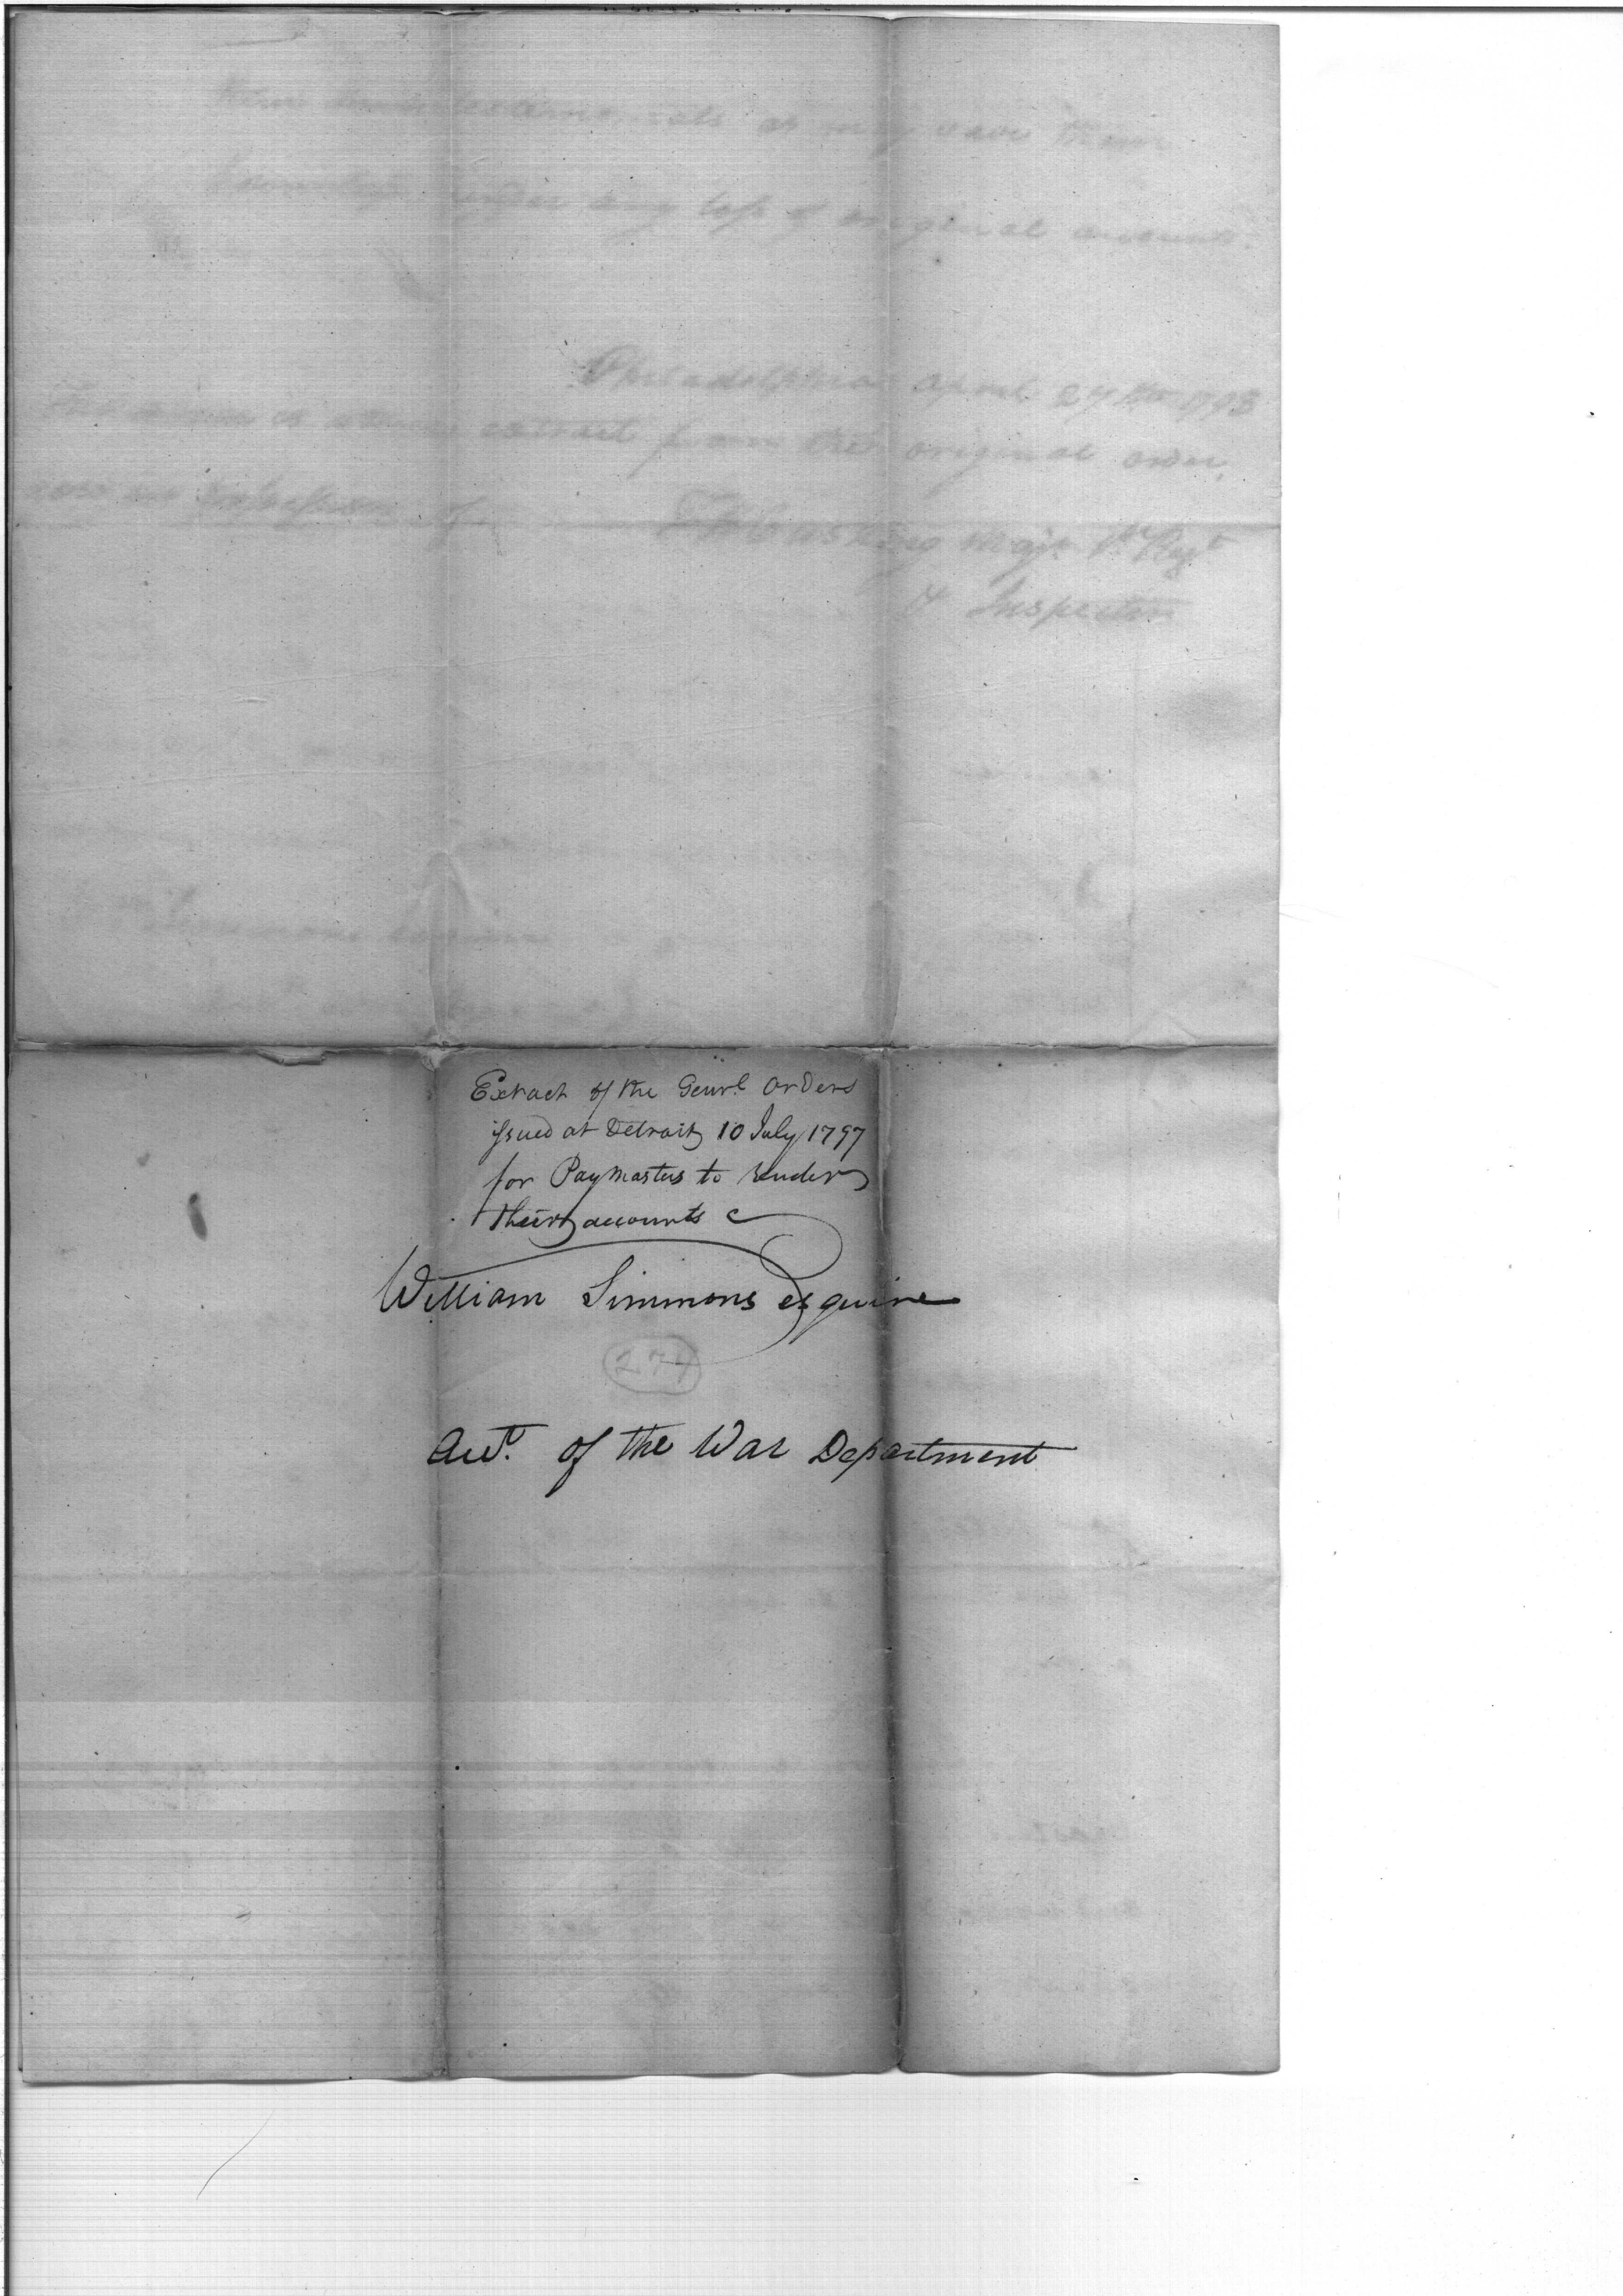 as may save them
any loss of original
Philadelphia April 27th 1798
extract from the original order,
T H Cushing Majr. 1st Regt
& Inspector
Extract of the Genrl. Orders
issued at Detroit 10 July 1797
for Paymasters to render
their accounts
William Simmons esquire
274
Acct. of the War Department